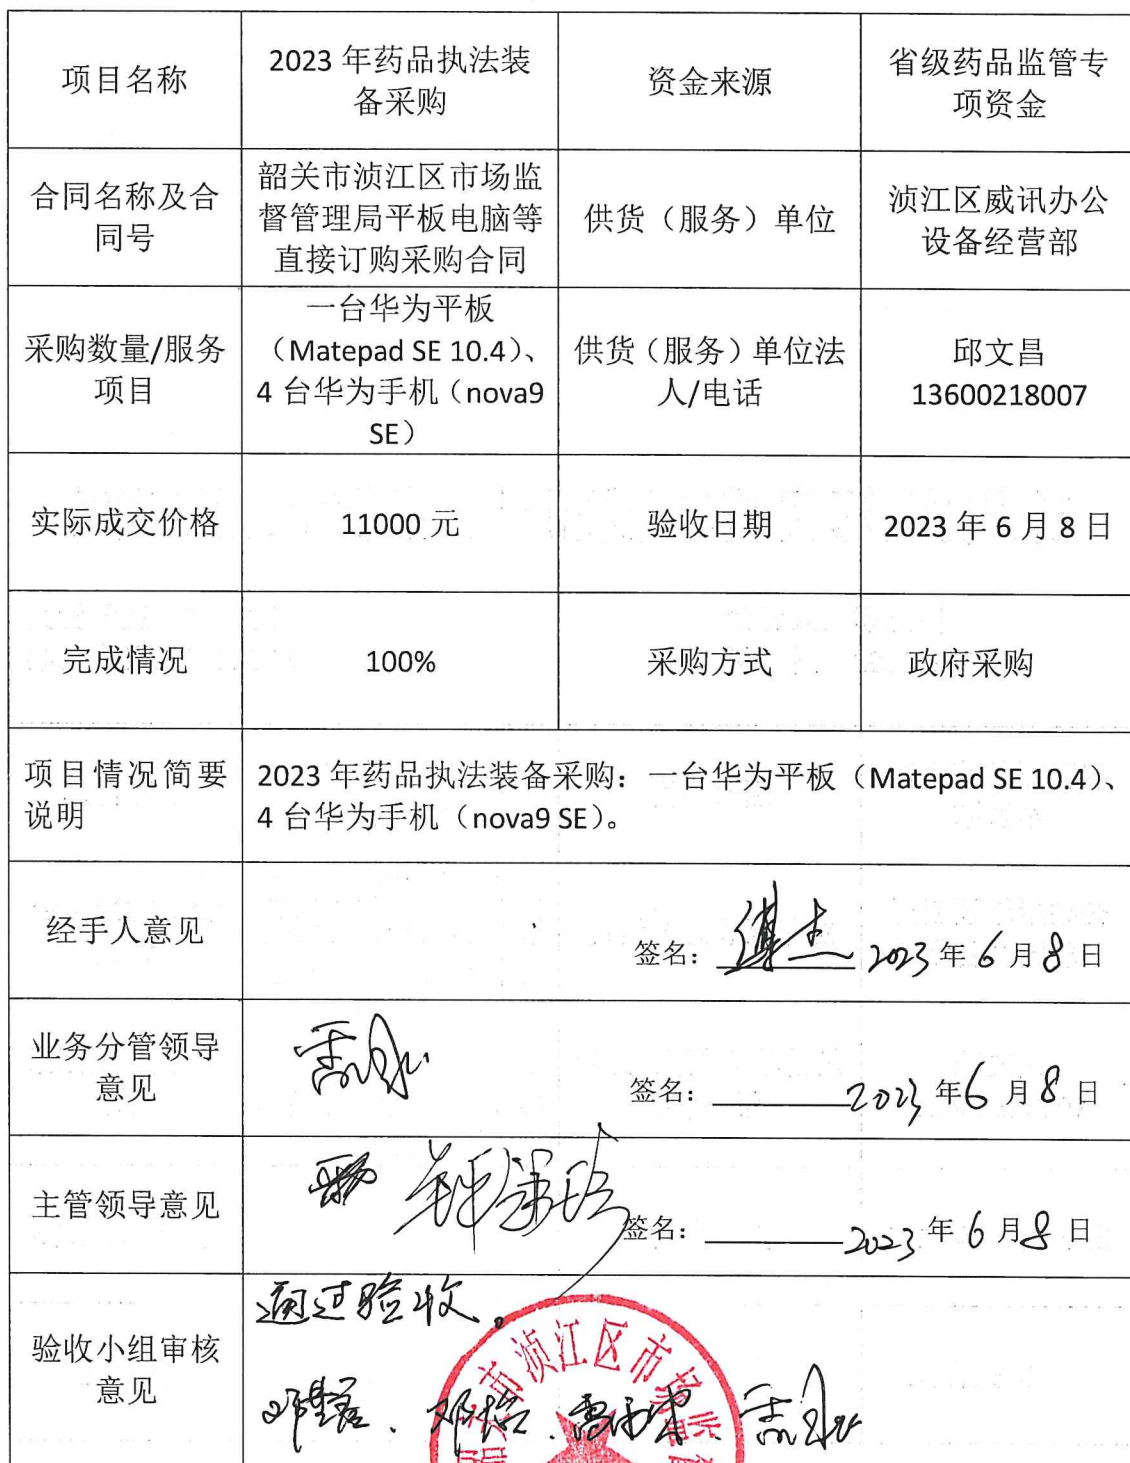 项目名称
2023 年药品执法装
备采购
资金来源
省级药品监管专
项资金
合同名称及合
同号
韶关市浈江区市场监
督管理局平板电脑等
直接订购采购合同
供货（服务）单位
浈江区威讯办公
设备经营部
采购数量/服务
项目
一台华为平板
（Matepad SE 10.4）、
4 台华为手机（nova9
SE）
供货（服务）单位法
人/电话
邱文昌
13600218007
实际成交价格
11000 元
验收日期
2023 年 6 月 8 日
完成情况
100%
采购方式
政府采购
项目情况简要
说明
2023 年药品执法装备采购：一台华为平板（Matepad SE 10.4）、
4 台华为手机（nova9 SE）。
经手人意见
签名： 2023 年 6 月 8 日
业务分管领导
意见
签名： 2023 年 6 月 8 日
主管领导意见
签名： 2023 年 6 月 8 日
验收小组审核
意见
通过验收。
市浈江区市场监